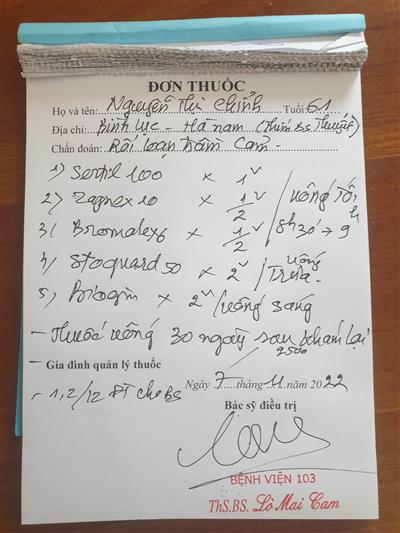 ĐƠN THUỐC
Họ và tên: Nguyễn Thị Chinh Tuổi: 61
Địa chỉ: Bình Lục - Hà Nam (Thím Bs Thuỷ)
Chẩn đoán: Rối loạn trầm cảm.
1) Sertil 100 x 1v
2) Zapnex 10 x 1/2v / uống tối
3( Bromalex 6 x 1/2v 8h30 → 9h
4) Stoguard 50 x 2v / uống trưa
5) x 2v / uống sáng
- Thuốc uống 30 ngày sau khám lại
- Gia đình quản lý thuốc
Ngày 7 tháng 11 năm 2022
- 1,2/12 ĐT cho BS
Bác sỹ điều trị
BỆNH VIỆN 103
ThS.BS. Lô Mai Cam